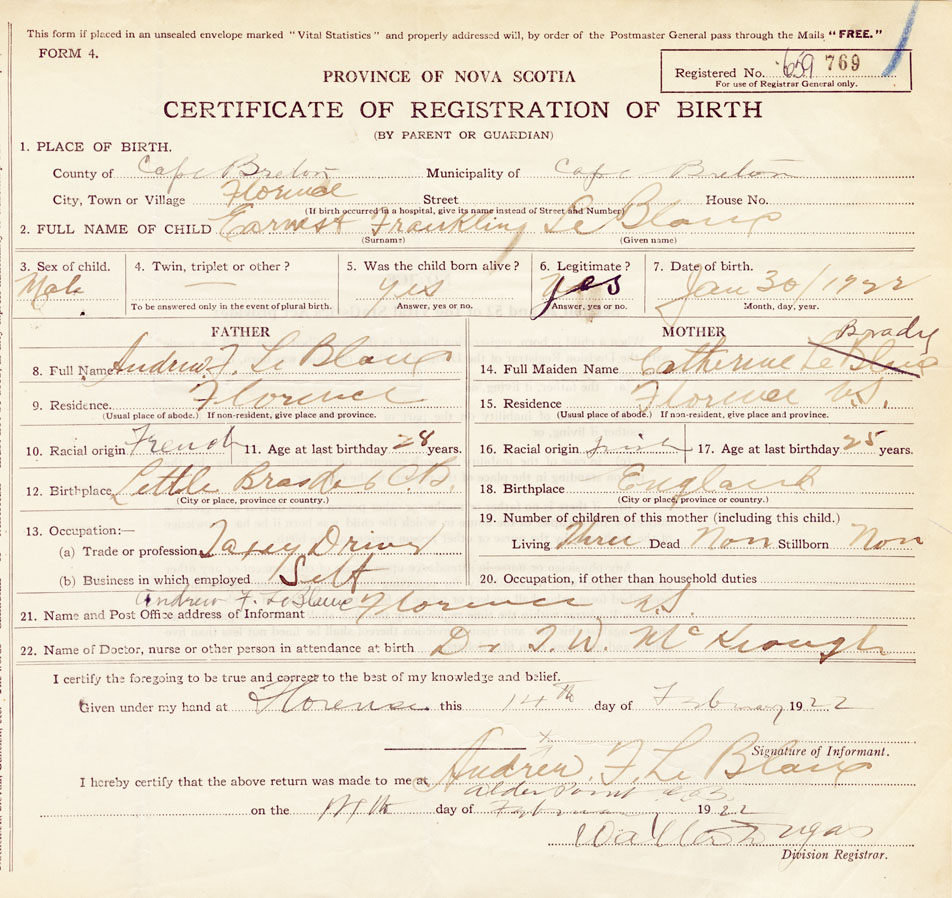 This form if placed in an unsealed envelope marked "Vital Statistics" and properly addressed will, by order of the Postmaster General pass through the Mails "FREE."
FORM 4.
Registered No. 659 769
For use of Registrar General only.
PROVINCE OF NOVA SCOTIA
CERTIFICATE OF REGISTRATION OF BIRTH
(BY PARENT OR GUARDIAN)
1. PLACE OF BIRTH.
County of Cape Breton Municipality of Cape Breton
City, Town or Village Florence Street House No.
(If birth occurred in a hospital, give its name instead of Street and Number)
2. FULL NAME OF CHILD Earnest Frankling Le Blanc
(Surname) (Given name)
3. Sex of child. 4. Twin, triplet or other? 5. Was the child born alive? 6. Legitimate? 7. Date of birth.
Male — yes yes Jan 30/1922
To be answered only in the event of plural birth. Answer, yes or no. Answer, yes or no. Month, day, year.
FATHER
8. Full Name Andrew. F. Le Blanc
9. Residence Florence
(Usual place of abode.) If non-resident, give place and province.
10. Racial origin French 11. Age at last birthday 28 years.
12. Birthplace Little Brasdor C.B.
(City or place, province or country.)
13. Occupation:—
(a) Trade or profession Taxey Driver
(b) Business in which employed Self
MOTHER
Brady
14. Full Maiden Name Catherine Le Blanc
15. Residence Florence N.S.
(Usual place of abode.) If non-resident, give place and province.
16. Racial origin Irish 17. Age at last birthday 25 years.
18. Birthplace England
(City or place, province or country.)
19. Number of children of this mother (including this child.)
Living Three Dead Non Stillborn Non
20. Occupation, if other than household duties
Andrew F. LeBlanc
21. Name and Post Office address of Informant Florence N.S.
22. Name of Doctor, nurse or other person in attendance at birth Dr T. W. McKeough
I certify the foregoing to be true and correct to the best of my knowledge and belief.
Given under my hand at Florence this 14th day of February 1922
Signature of Informant.
Andrew. F. Le Blanc
I hereby certify that the above return was made to me at Alder Point
on the 14th day of February 1922
Division Registrar.